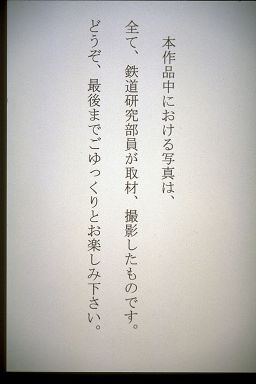 本作品中における写真は、
全て、鉄道研究部員が取材、撮影したものです。
どうぞ、最後までごゆっくりとお楽しみ下さい。